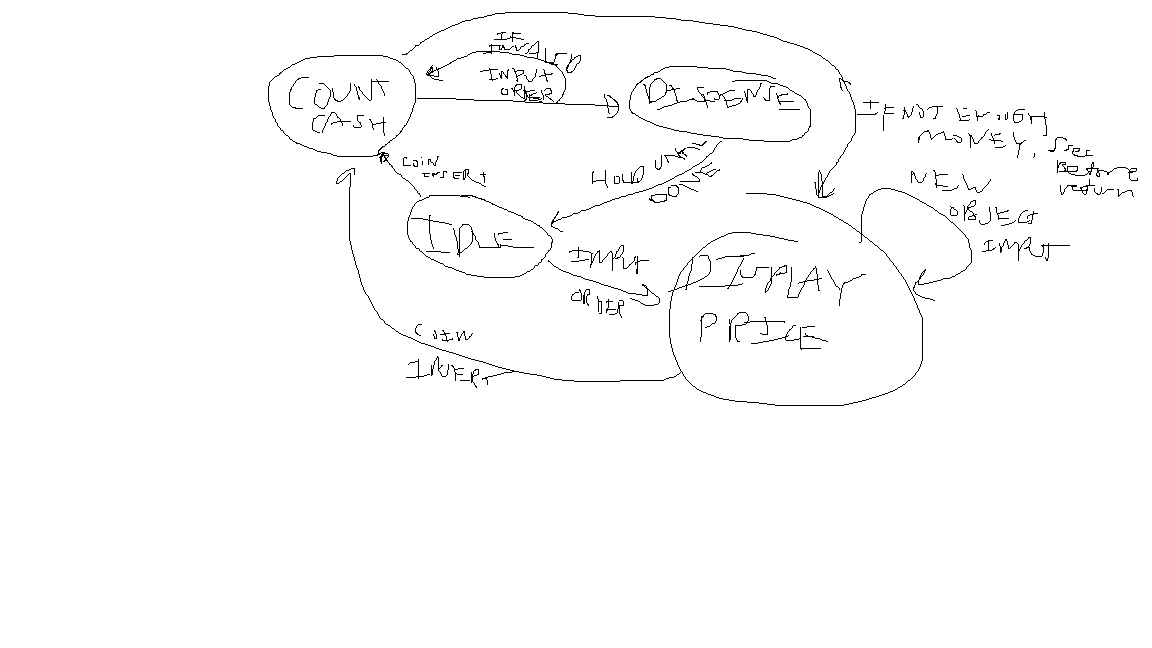 IF
INVALID
INPUT
ORDER
COUNT
CASH
DISPENSE
IF NOT ENOUGH
MONEY, 5sec
Before
return
COIN
INSERT
HOLD UNTIL
DONE
NEW
OBJECT
INPUT
IDLE
INPUT
ORDER
DISPLAY
PRICE
COIN
INSERT